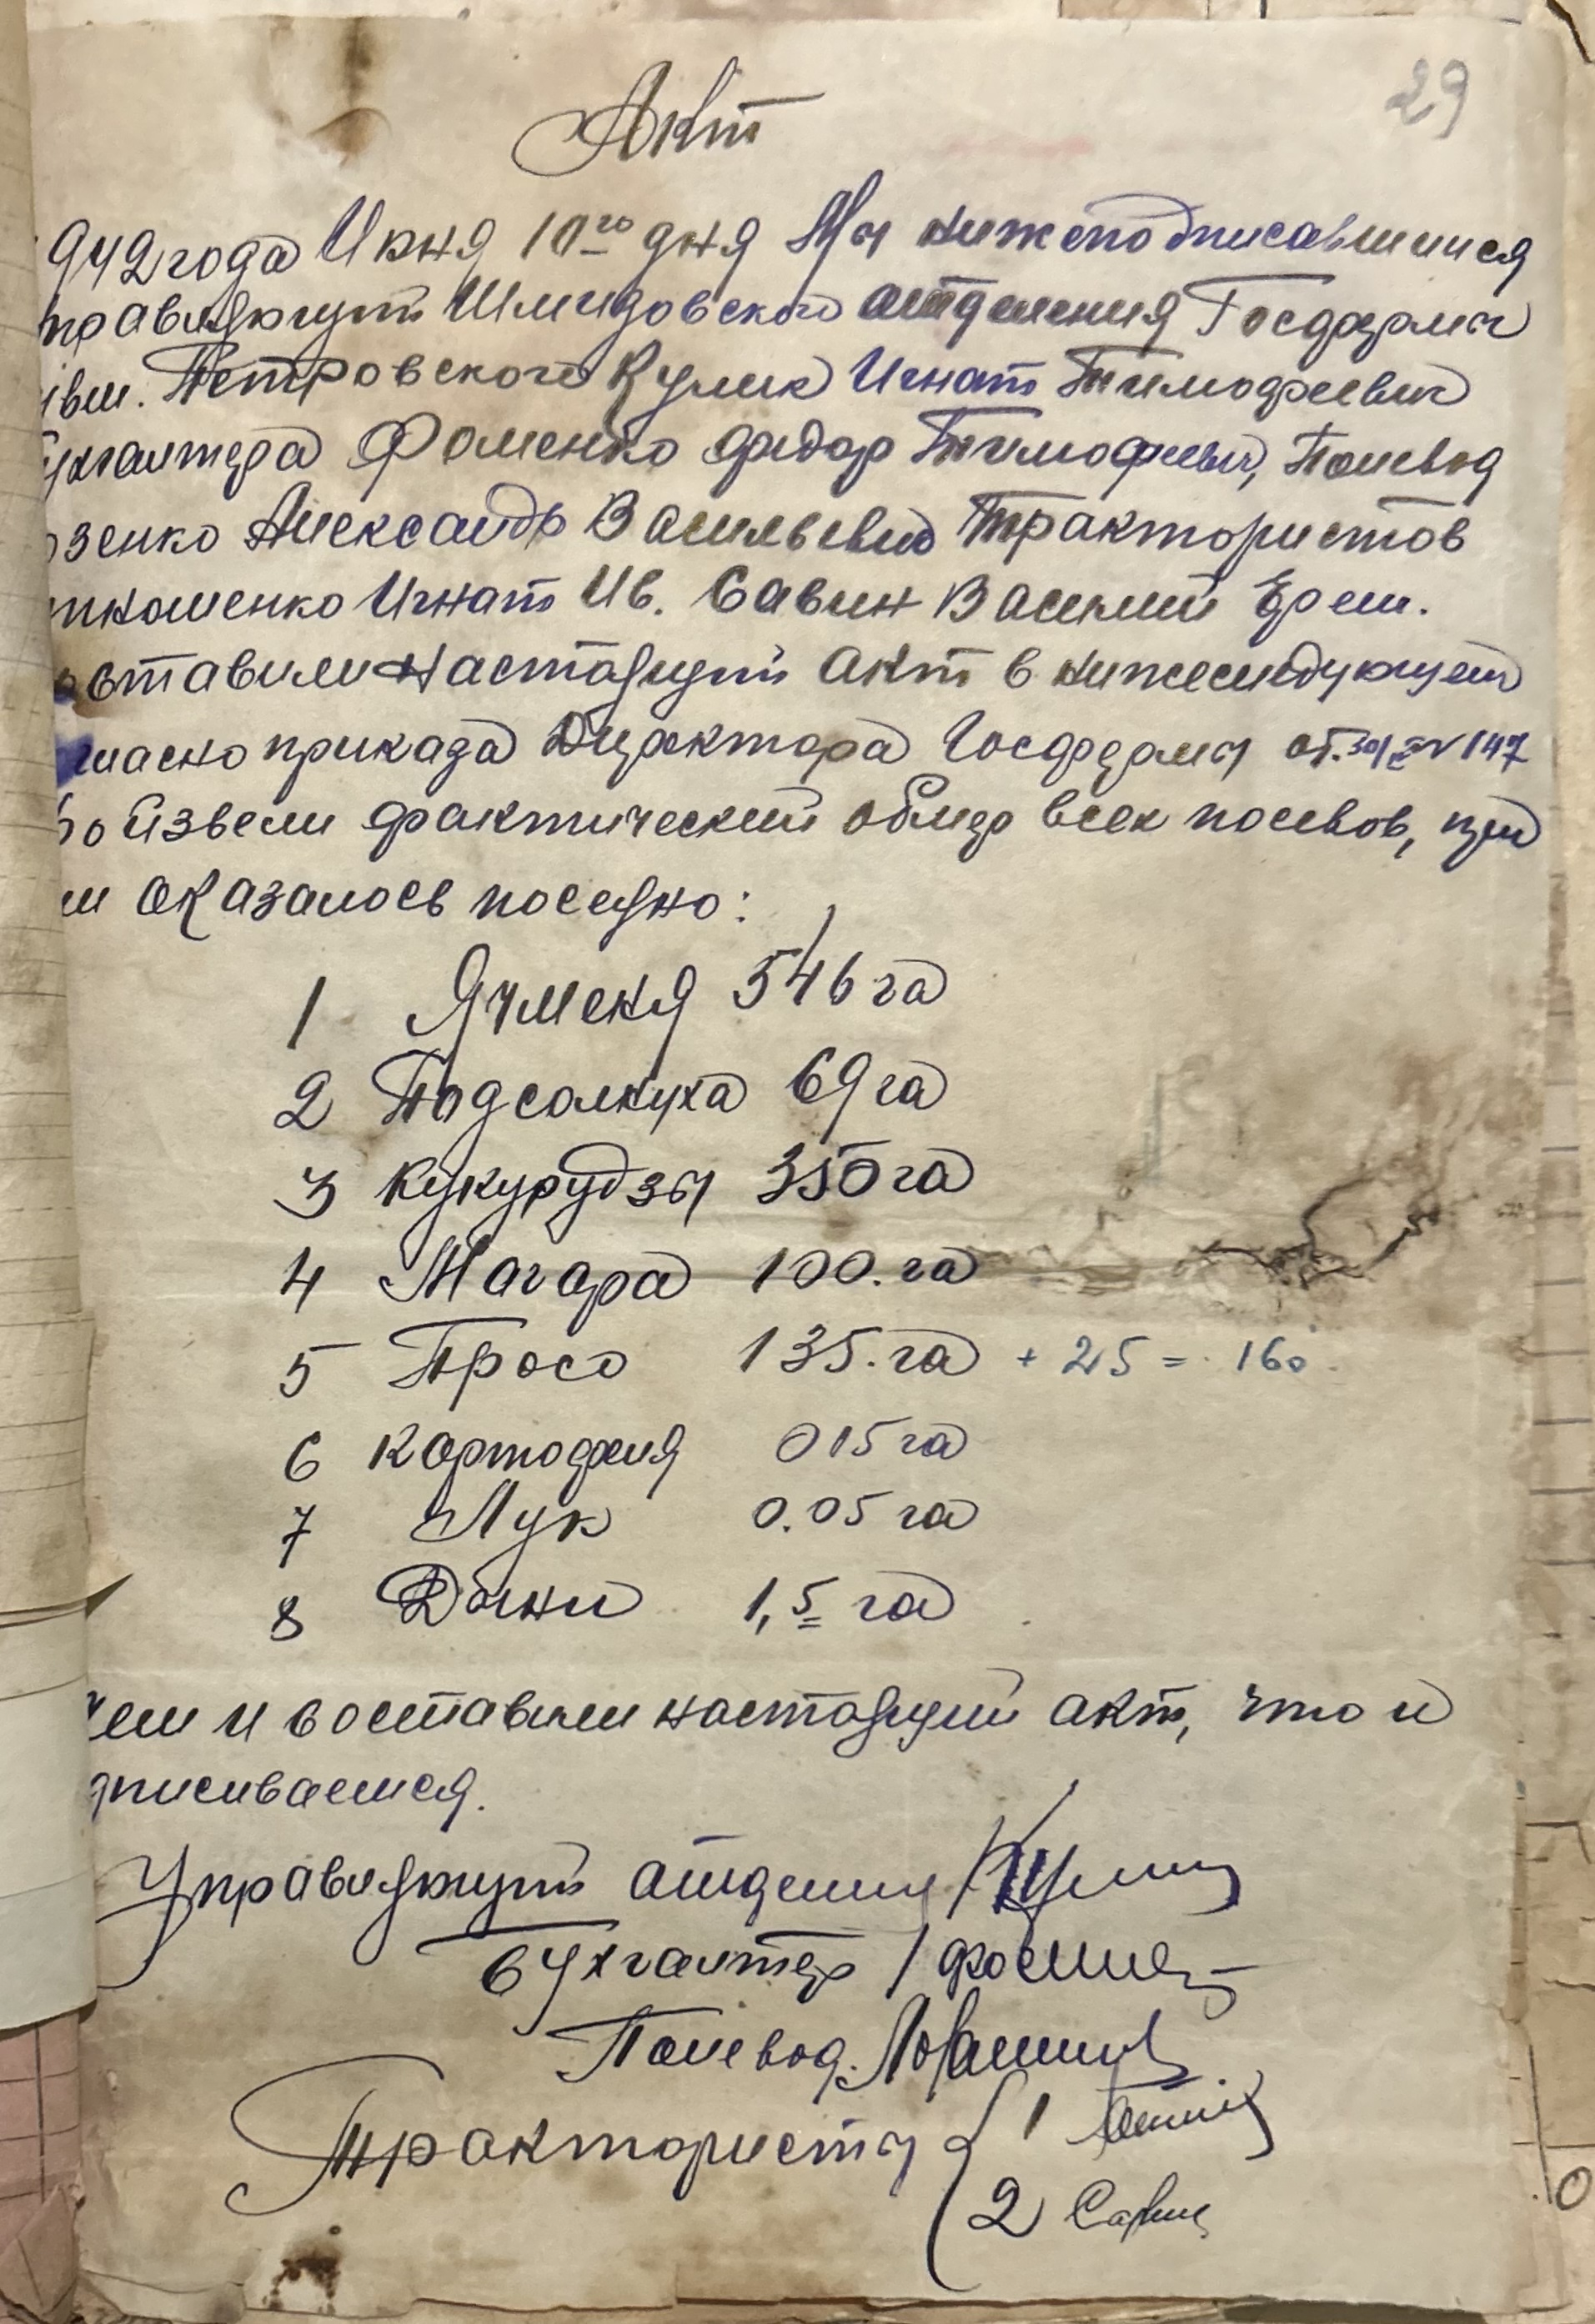 29
Акт
942 года Июня 10го дня Мы нижеподписавшиися
правляющий Шмидовского отделения Госфермы
Петровского Кулик Игнат Тимофеевич
ухгалтера Фоменко Федор Тимофеевич, Полевод
зенко Александр Васильевич Трактористов
Игнат Ив. Савин Василий Ерем.
оставили настоящий акт в нижеследующем
гласно приказа Директора Госфермы от 147
оизвели фактический обмер всех посевов, при
м оказалось посеяно:
1 Ячменя 546 га
2 Подсолнуха 69 га
3 Кукурудзы 350 га
4 Магара 100. га
5 Просо 135. га + 25 = 160
6 Картофеля 015 га
7 Лук 0.05 га
8 Дыни 1,5 га
чем и составили настоящий акт, что и
дписиваемся.
Управляющий отделения Кулик
Бухгалтер /Фоменко
Полевод
Трактористы 1
2 Савин